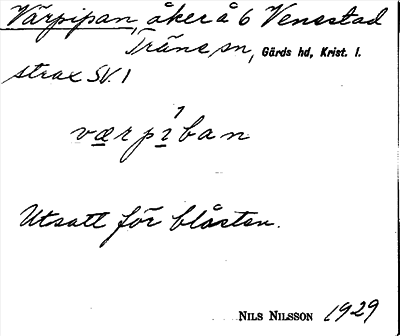 Värpipan, åker å 6 Venestad
Träne sn, Gärds hd, Krist. l.
strax SV. 1
værpi̱ban
Utsatt för blåsten.
NILS NILSSON 1929